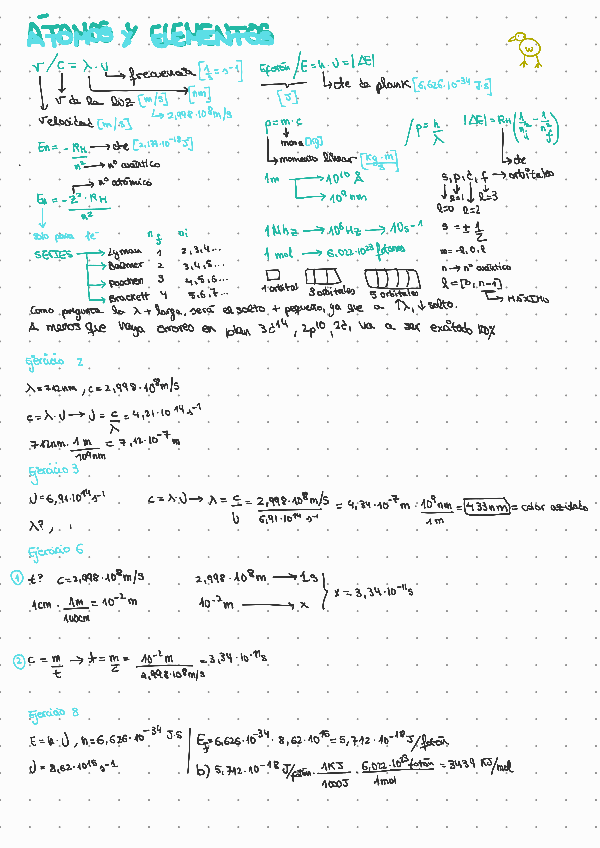 ÁTOMOS Y ELEMENTOS
W
V/C = λ · ν
frecuencia [1/s = s⁻¹]
[nm]
V de la luz [m/s]
2,998·10⁸ m/s
velocidad [m/s]
Efotón/E = h · ν = |ΔE|
cte de plank [6,626·10⁻³⁴ J·s]
[J]
En = - RH/n² → cte [2,179·10⁻¹⁸ J]
nº cuántico
nº atómico
En = -Z² · RH/n²
"solo para 1e⁻"
p = m·c
masa [kg]
momento lineal [kg·m/s]
/p = h/λ
|ΔE| = RH (1/n²i - 1/n²f)
cte
1m → 10¹⁰ Å
10⁹ nm
s, p, d, f → orbitales
l=1 l=3
l=0 l=2
1 Mhz → 10⁶ Hz → 10⁶ s⁻¹
1 mol → 6,022·10²³ fotones
s = ± 1/2
m = -l, 0, l
n → nº cuántico
l = [0, n-1]
MÁXIMO
1 orbital 3 orbitales 5 orbitales
SERIES nf ni
Lyman 1 2,3,4...
Balmer 2 3,4,5...
Paschen 3 4,5,6...
Brackett 4 5,6,7...
Como pregunta la λ + larga, será el salto + pequeño, ya que a ↑λ, ↓ salto.
A menos que haya errores en plan 3d¹⁴, 2p¹⁰, 2d, va a ser excitado
Ejercicio 2
λ = 712nm, c = 2,998·10⁸ m/s
c = λ·ν → ν = c/λ = 4,21·10¹⁴ s⁻¹
712nm · 1 m/10⁹nm = 7,12·10⁻⁷ m
Ejercicio 3
ν = 6,91·10¹⁴ s⁻¹ c = λ·ν → λ = c/ν = 2,998·10⁸ m/s / 6,91·10¹⁴ s⁻¹ = 4,34·10⁻⁷ m · 10⁹ nm/1m = 433nm = color
λ?,
Ejercicio 6
1 t? c = 2,998·10⁸ m/s 2,998·10⁸ m → 1s
1cm · 1m/100cm = 10⁻² m 10⁻² m → x
x = 3,34·10⁻¹¹ s
2 c = m/t → t = m/c = 10⁻² m / 2,998·10⁸ m/s = 3,34·10⁻¹¹ s
Ejercicio 8
E = h·ν, h = 6,626·10⁻³⁴ J·s Ef = 6,626·10⁻³⁴ · 8,62·10¹⁵ = 5,712·10⁻¹⁸ J/fotón
ν = 8,62·10¹⁵ s⁻¹ b) 5,712·10⁻¹⁸ J/fotón · 1KJ/1000J · 6,022·10²³ fotón/1mol = 3439 KJ/mol